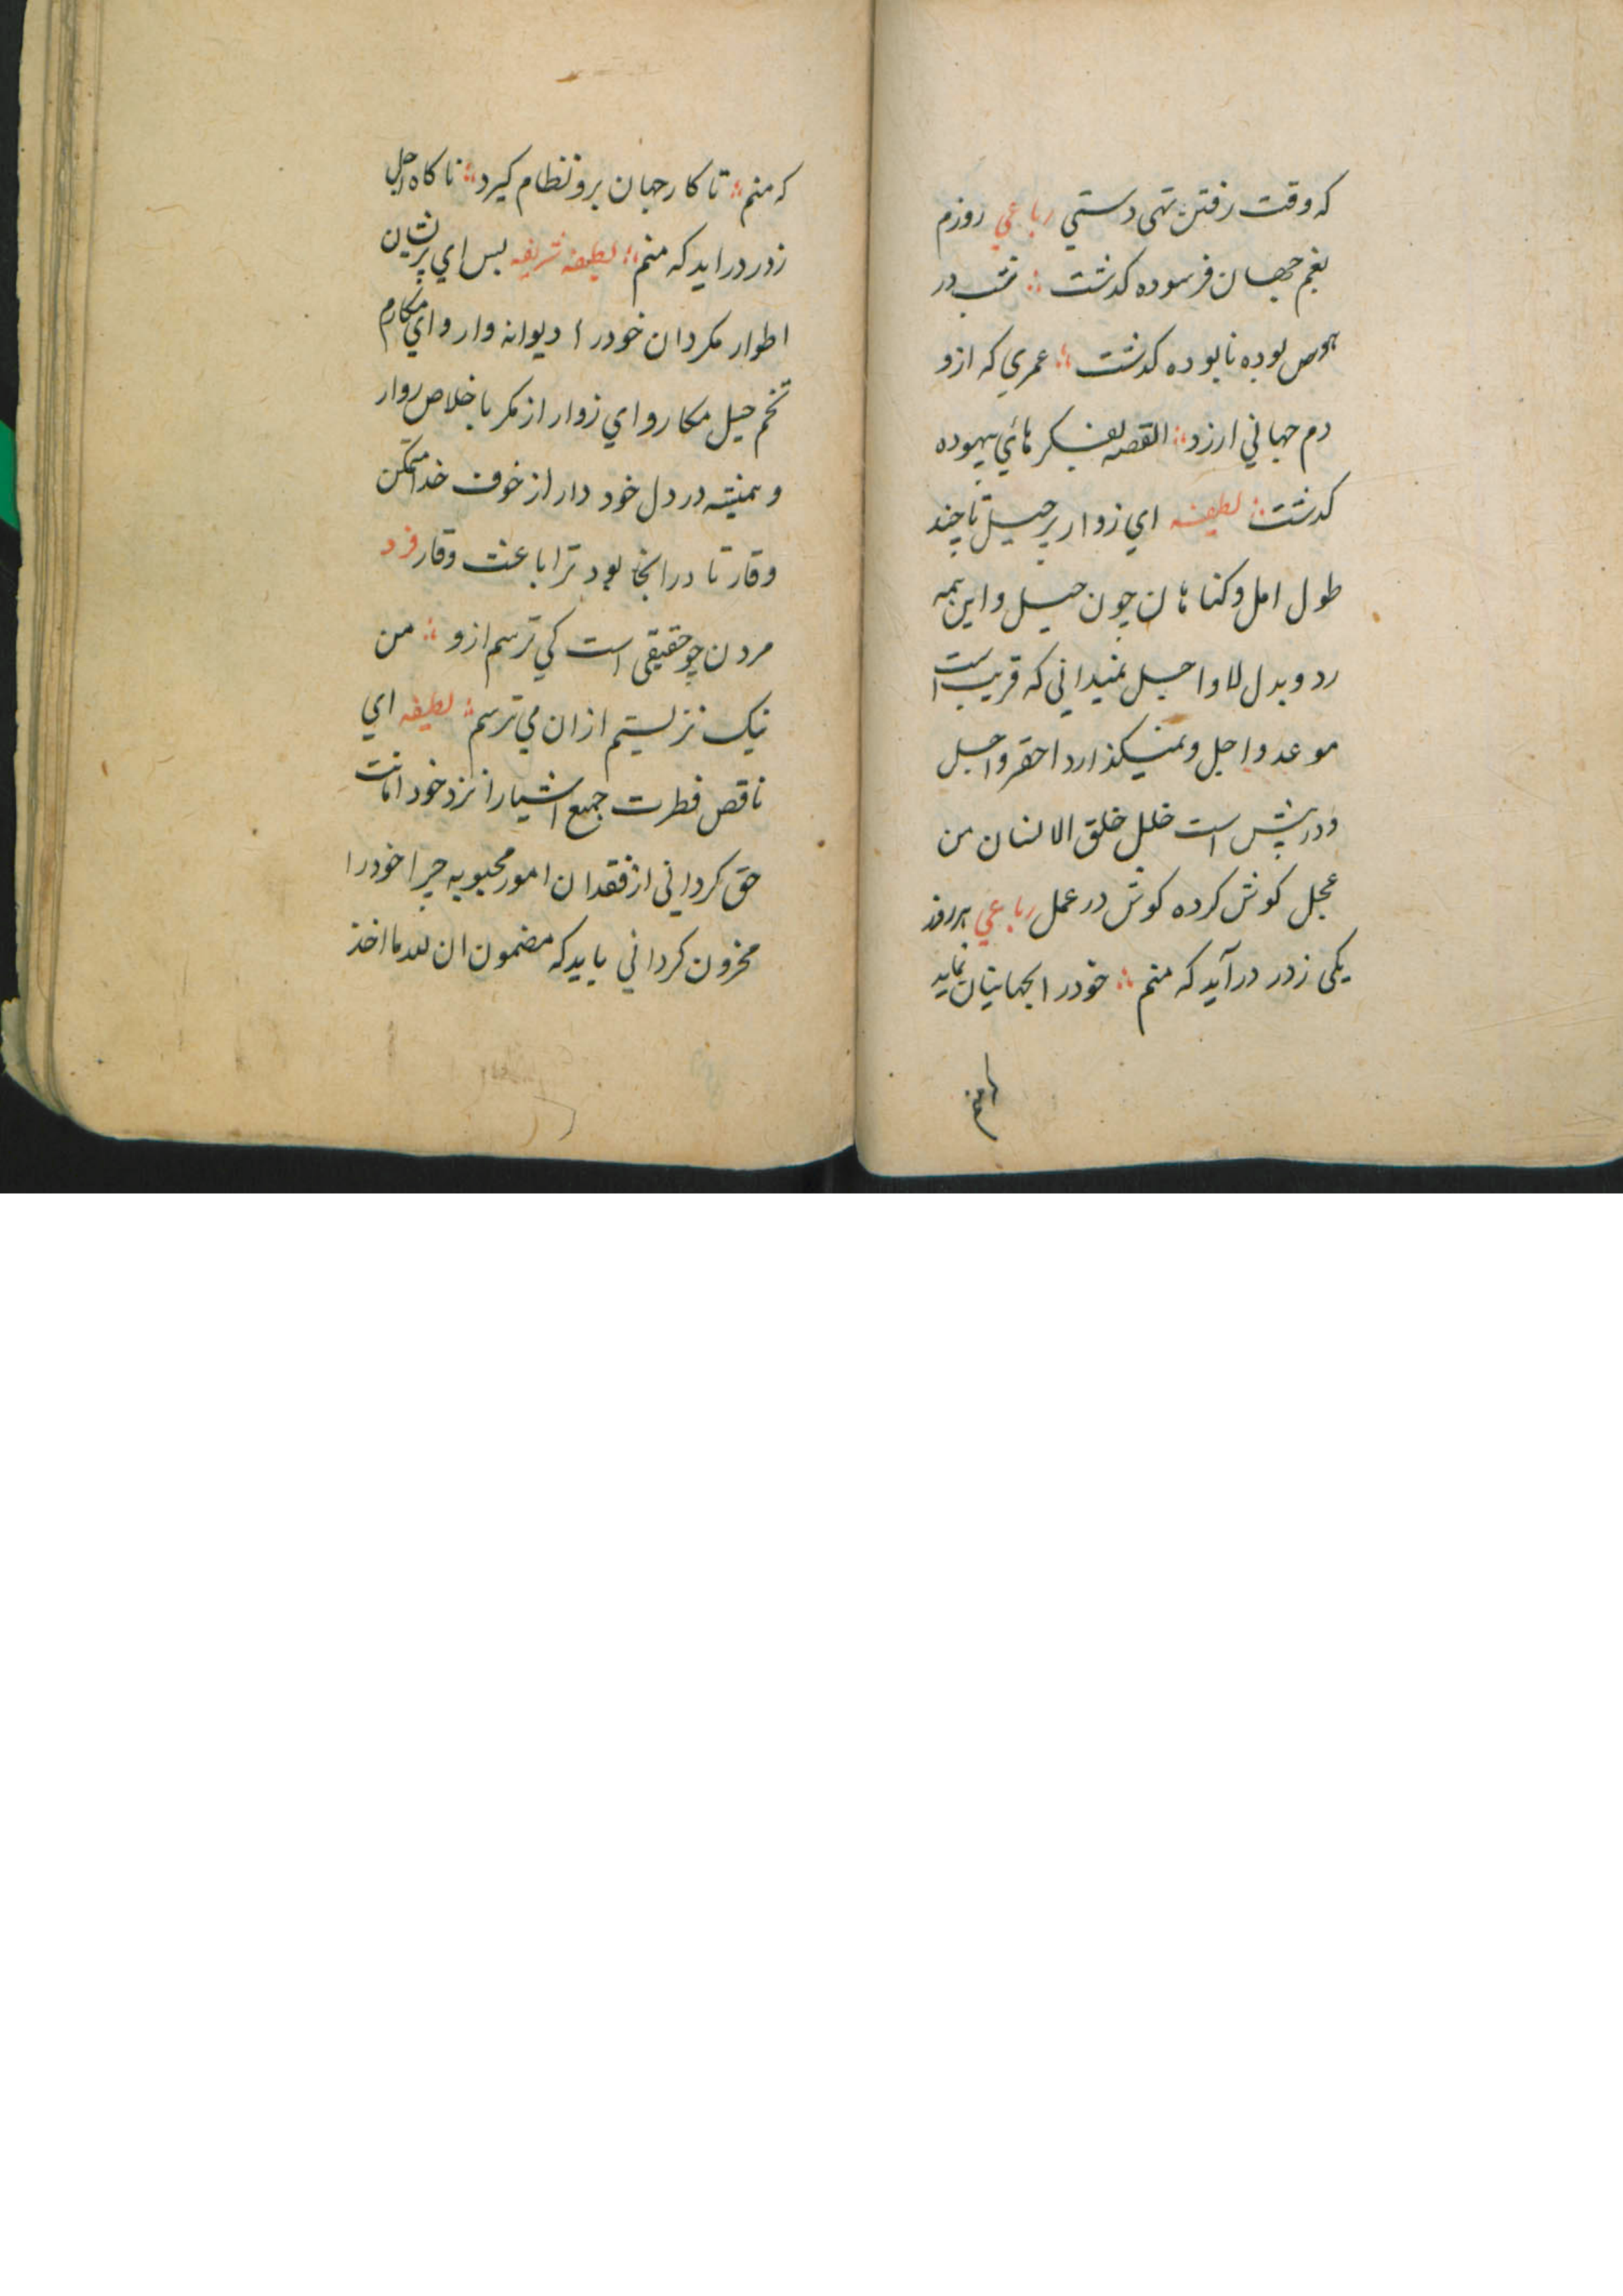 که وقت رفتن تهی دستي رباعي روزم
بغم جهان فرسوده کدشت ؛ شب در
هوس بوده نابوده کدشت ؛ عمري که ازو
دم جهاني ارزد ؛ القصه بفکر هائي بیهوده
کدشت ؛ لطیفه اي زوار پر حیل تا چند
طول امل و کناهان چون جبل و این همه
رد و بدل لا و اجل نمیداني که قریب است
موعد و اجل و نمیکذارد احقر و اجل
و در پیش است خلل خلق الانسان من
عجل کوش کرده کوش در عمل رباعي هر روز
یکی زدر درآید که منم ؛ خود را بجهانیان نماید
که منم
که منم ؛ تا کار جهان برو نظام کیرد ؛ ناکاه اجل
زدر در اید که منم ؛ لطیفه شریفه بس اي پریشان
اطوار مکردان خود را دیوانه وار و اي مکارم
تخم حیل مکار و اي زوار از مکر با خلاص رو ار
و همیشه در دل خود دار از خوف خدا متمکن
وقار تا در انجا بود ترا باعث وقار فرد
مردن چو حقیقی است کي ترسم ازو ؛ من
نیک نزیستم ازان مي ترسم ؛ لطیفه اي
ناقص فطرت جمیع اشیا را نزد خود امانت
حق کرداني از فقدان امور محبوبه چرا خود را
مخزون کرداني باید که مضمون ان لله ما اخذ